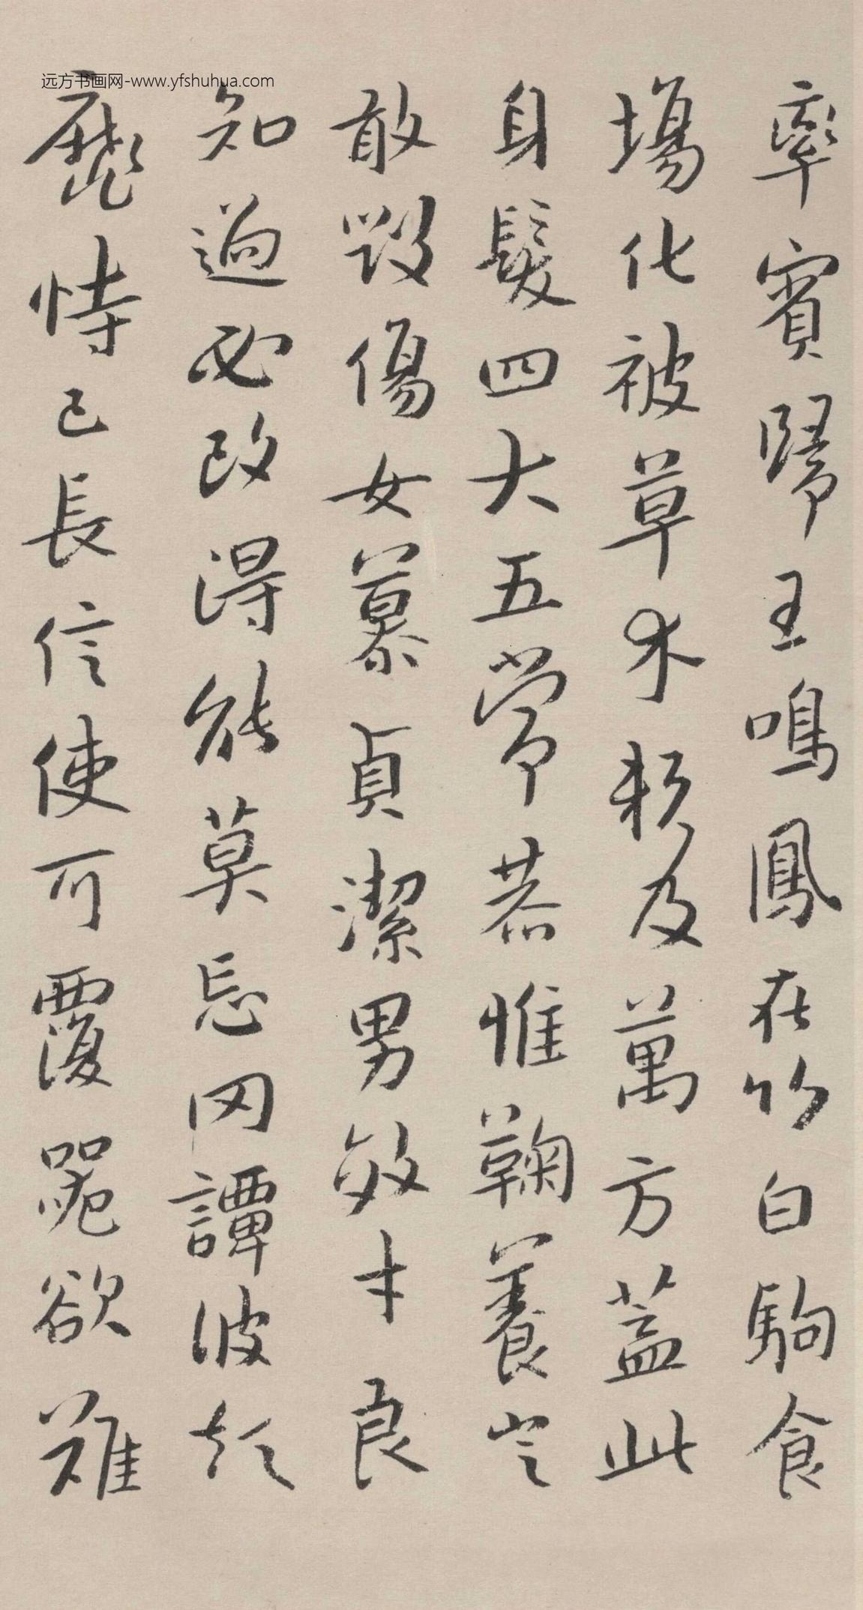 远方书画网-www.yfshuhua.com
率賓歸王鳴鳳在竹白駒食
場化被草木賴及萬方蓋此
身髮四大五常恭惟鞠養豈
敢毀傷女慕貞潔男效才良
知過必改得能莫忘罔譚彼短
靡恃己長信使可覆器欲難